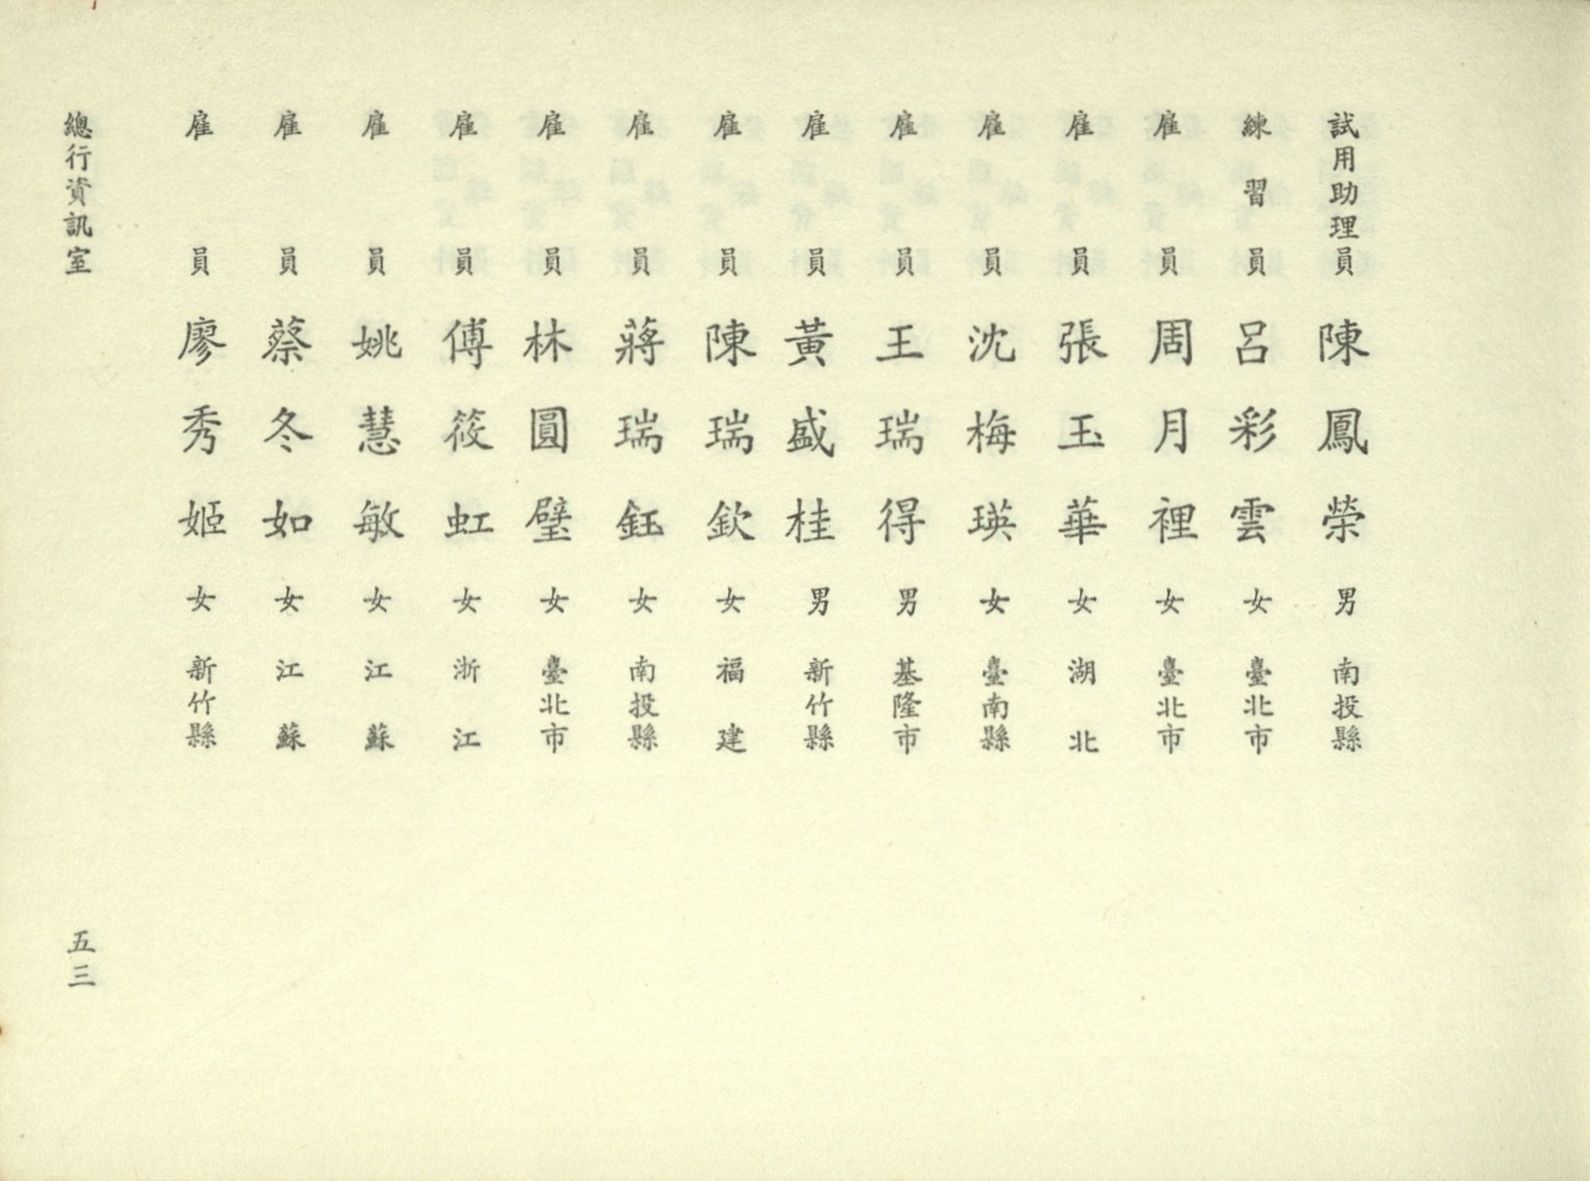 試用助理員 陳鳳榮 男 南投縣
練習員 呂彩雲 女 臺北市
雇員 周月裡 女 臺北市
雇員 張玉華 女 湖北
雇員 沈梅瑛 女 臺南縣
雇員 王瑞得 男 基隆市
雇員 黃盛桂 男 新竹縣
雇員 陳瑞欽 女 福建
雇員 蔣瑞鈺 女 南投縣
雇員 林圓璧 女 臺北市
雇員 傅筱虹 女 浙江
雇員 姚慧敏 女 江蘇
雇員 蔡冬如 女 江蘇
雇員 廖秀姬 女 新竹縣
總行資訊室 五三